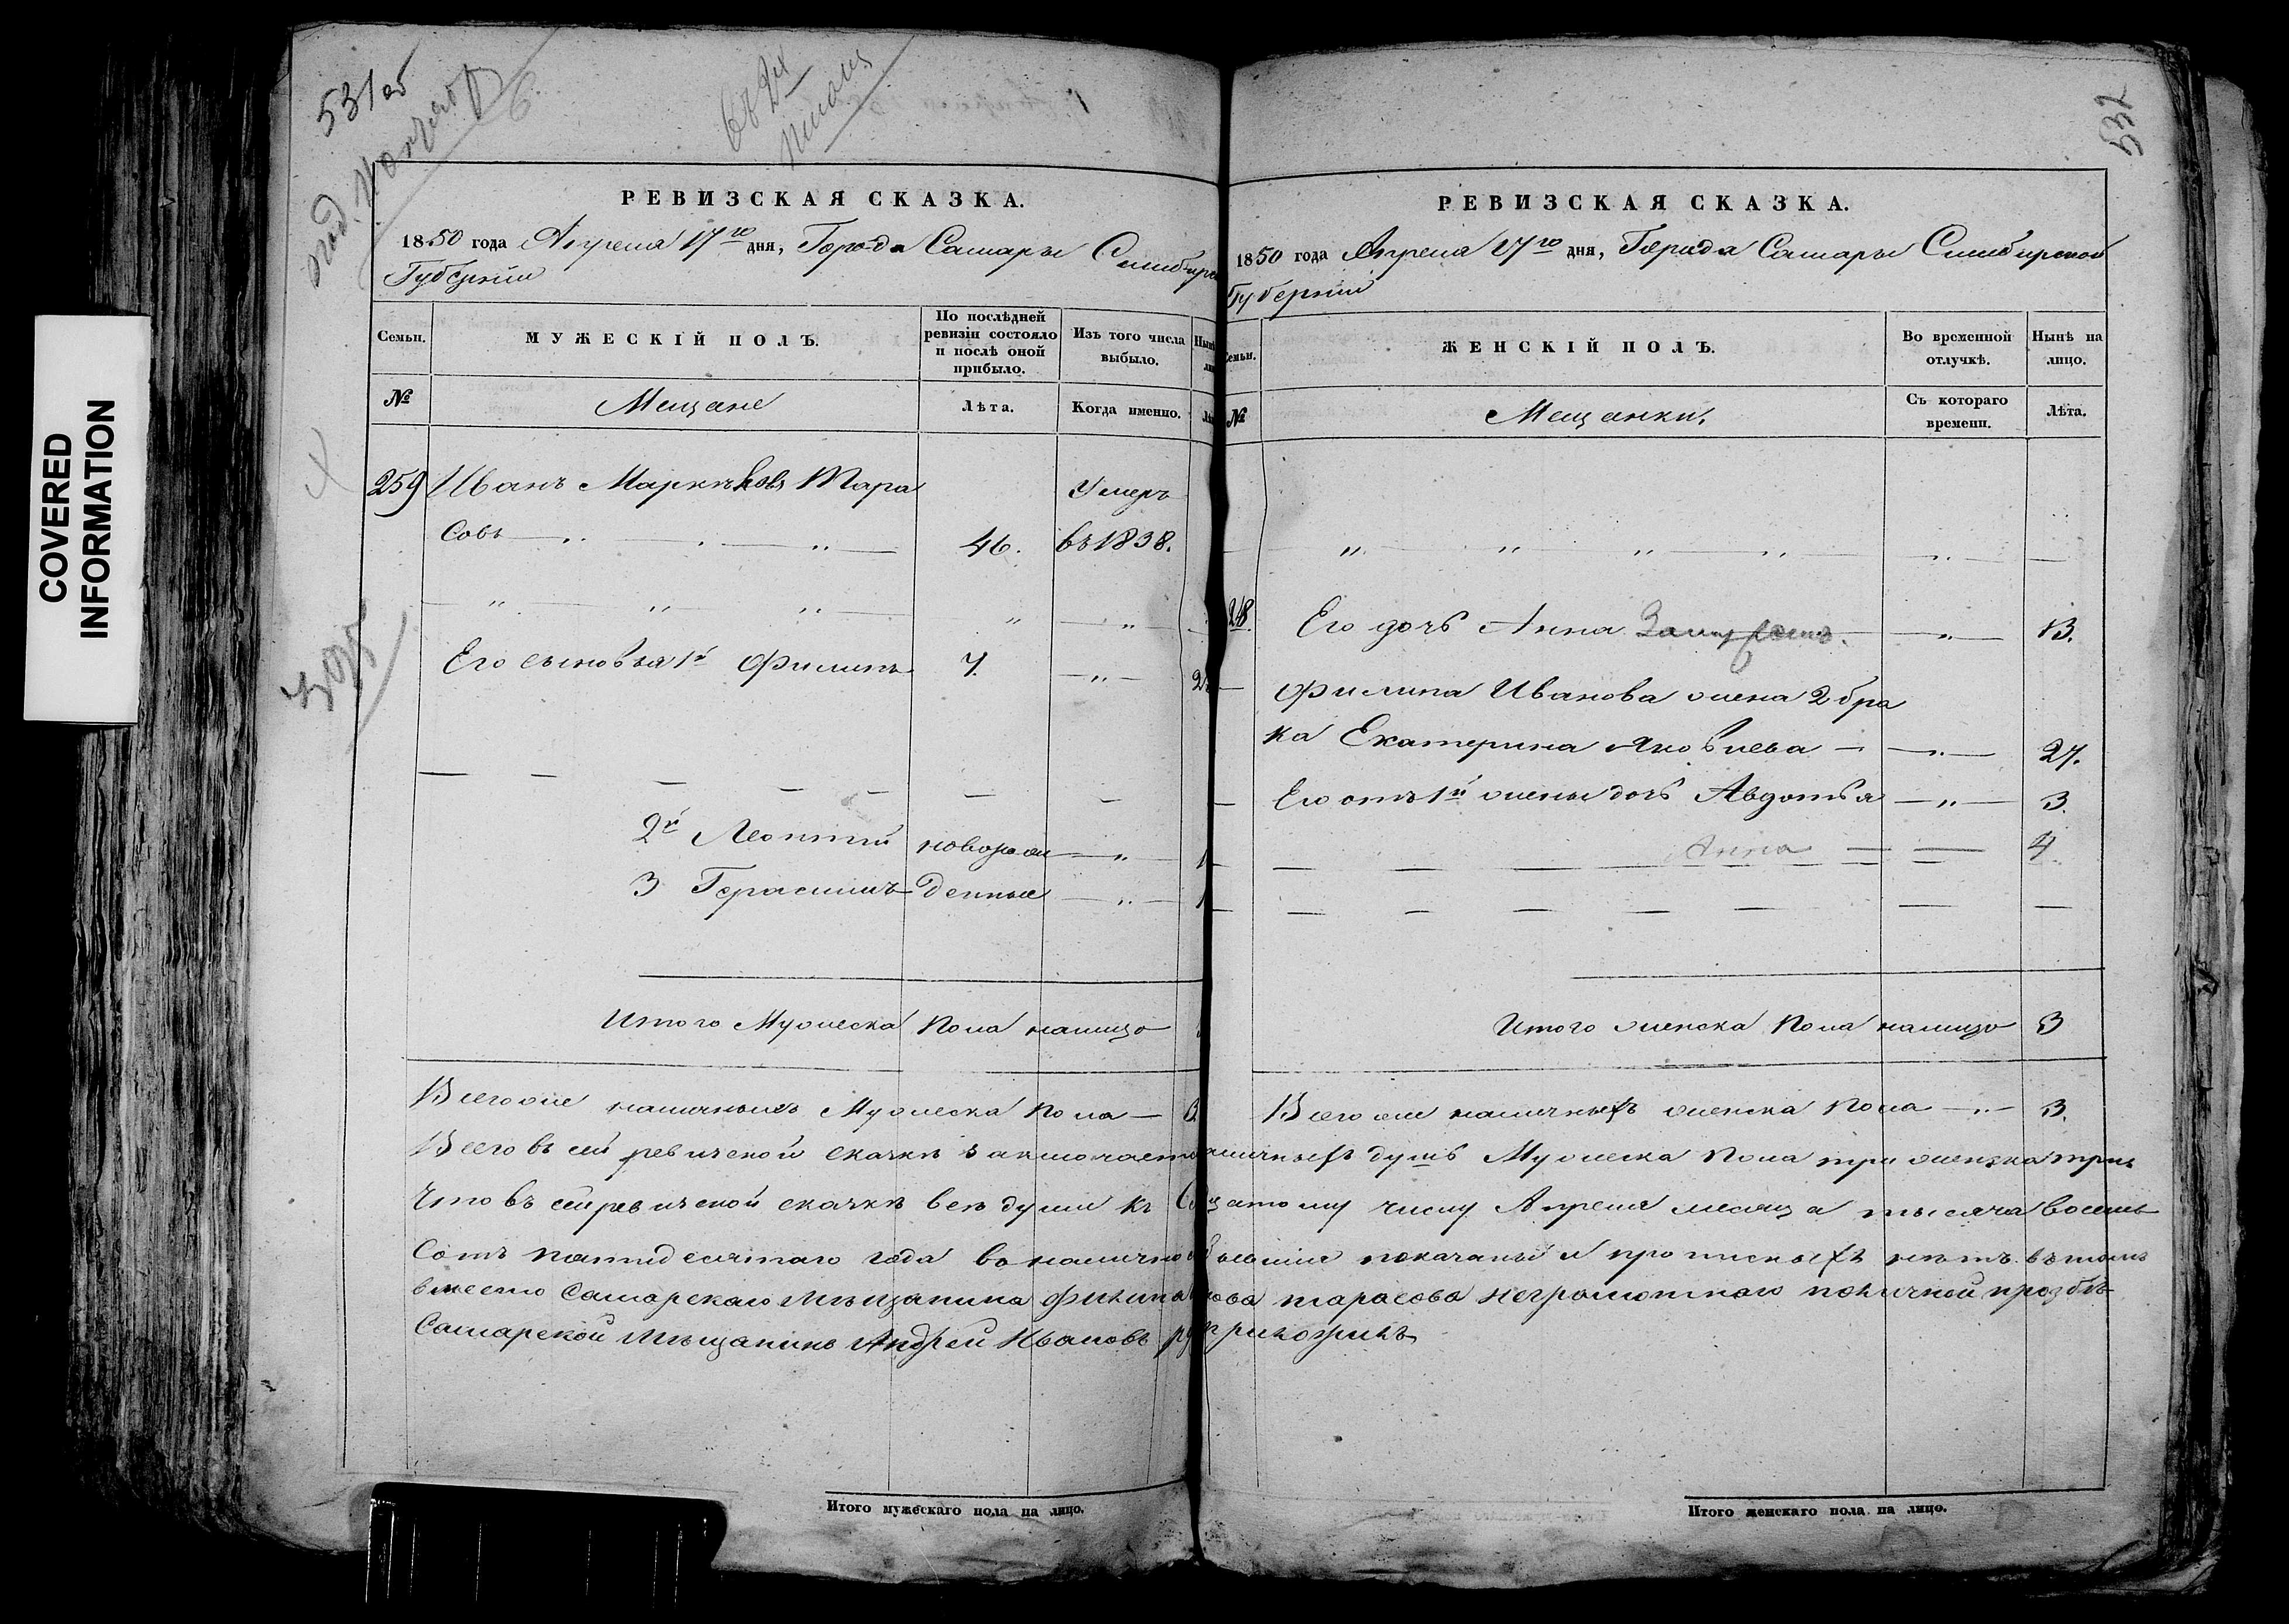 531 об
6.
РЕВИЗСКАЯ СКАЗКА.
1850 года Апреля 17го дня, Города Самары Симбирс
Губернии
Семьи. МУЖЕСКІЙ ПОЛЪ. По послѣдней ревизіи состояло и послѣ оной прибыло. Изъ того числа выбыло. Нынѣ
№ Мещане Лѣта. Когда именно.
259 Иванъ Тара Умеръ
совъ 46. въ 1838.
Его сыновья 1й Филипъ 7.
2й Леонтий новорож 1
3 Герасимъ денные 1
Итого Мужеска Пола налицо
Всего же наличныхъ Мужеска Пола 3.
Итого мужескаго пола на лицо.
532
РЕВИЗСКАЯ СКАЗКА.
1850 года Апреля 17го дня, Города Самары Симбирской
Губернии
Семьи. ЖЕНСКІЙ ПОЛЪ. Во временной отлучкѣ. Нынѣ на лицо.
№ Мещанки. Съ котораго времени. Лѣта.
Его дочь Анна 13.
Филипа Иванова жена 2 бра
ка Екатерина Яковлева 27.
Его отъ 1й жены дочь Авдотья 3.
Анна 4
Итого женска Пола налицо 3
Всего же наличныхъ женска Пола 3.
Всего въ сей ревиской скаске заключает наличныхъ душъ Мужеска Пола три женска три
Что въ сей ревиской скаске все души к цатому числу Апреля месяца тысяча восемь
сотъ пятидесятаго года в показаны и прописныхъ нетъ. въ томъ
вместо Самарскаго Мещанина Филипа Тарасова неграмотнаго по личной прозбе
Самарской Мещанинъ Андрей Ивановъ приложилъ
Итого женскаго пола на лицо.
COVERED
INFORMATION